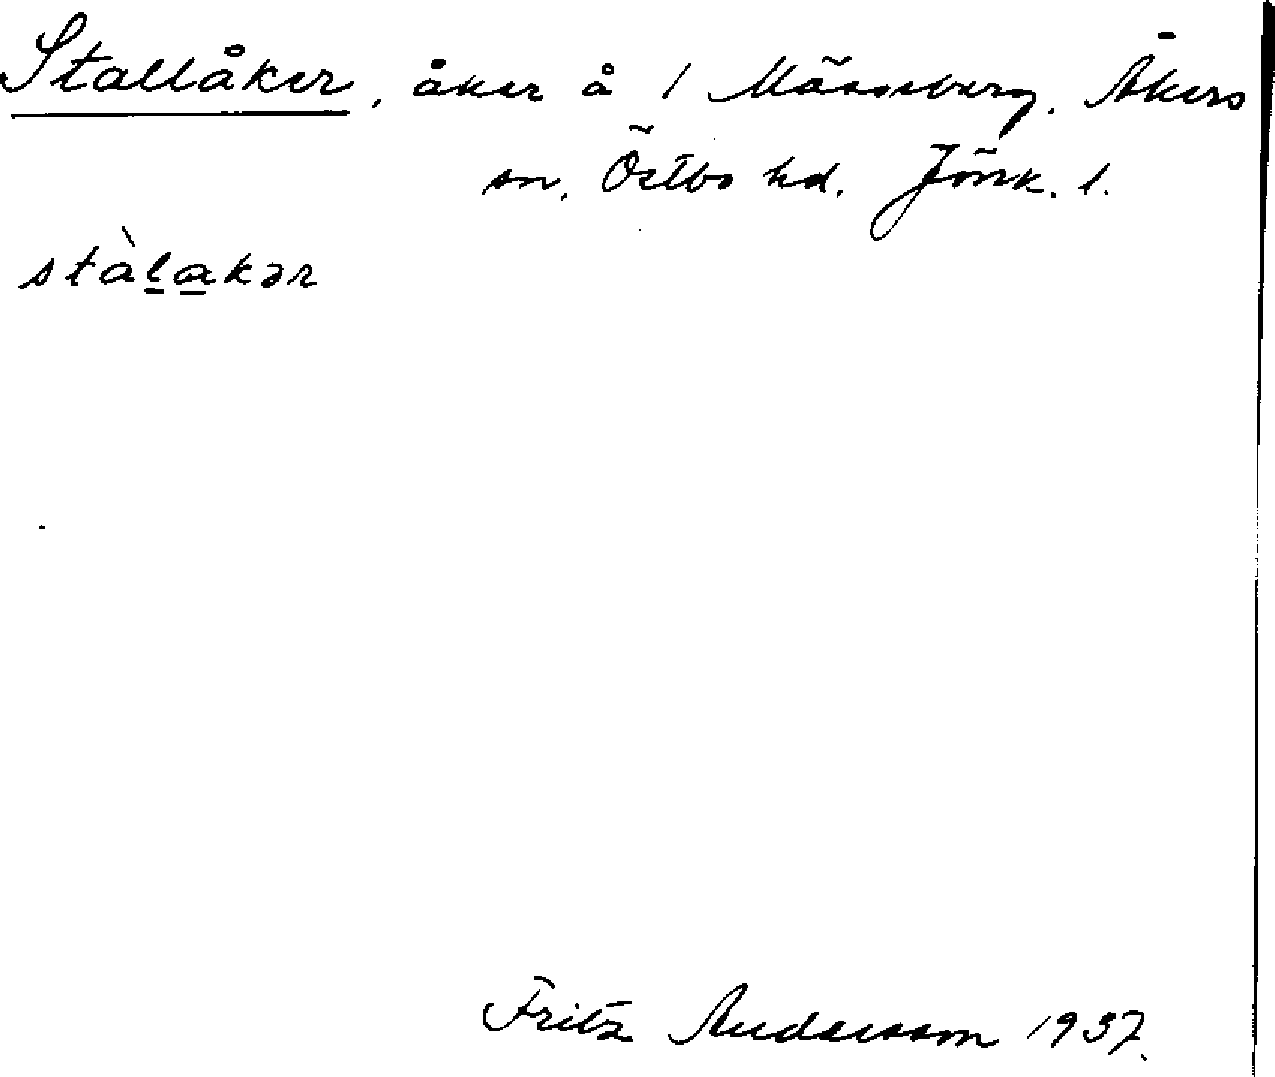 Stallåker, åker å 1 Mässeberg. Åkers
sn. Östbo hd. Jönk. l.
stàlakər
Fritz Andersson 1937.